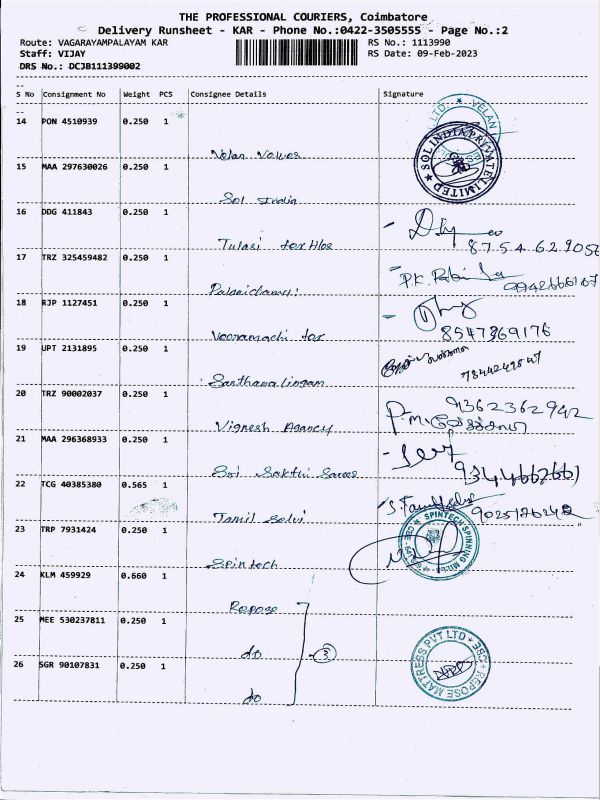 THE PROFESSIONAL COURIERS, Coimbatore
Delivery Runsheet - KAR - Phone No.:0422-3505555 - Page No.:2
Route: VAGARAYAMPALAYAM KAR RS No.: 1113990
Staff: VIJAY RS Date: 09-Feb-2023
DRS No.: DCJB111399002
S No Consignment No Weight PCS Consignee Details Signature
14 PON 4510939 0.250 1
LTD. ★ VELAN
Velan Valves
15 MAA 297630026 0.250 1
SOL INDIA PRIVATE LIMITED ★
Sol India
16 DDG 411843 0.250 1
Tulasi
17 TRZ 325459482 0.250 1
P.K.
Palanichamy
18 RJP 1127451 0.250 1
8547369176
19 UPT 2131895 0.250 1
Santhana Lingam
20 TRZ 90002037 0.250 1
9362362942
Vignesh Agency
21 MAA 296368933 0.250 1
Sri Sakthi
22 TCG 40385380 0.565 1
Tamil Selvi
9025176242
23 TRP 7931424 0.250 1
★ SPINTECH SPINNING MILLS ★ CBE
Spintech
24 KLM 459929 0.660 1
Repose
25 MEE 530237811 0.250 1
do
3
26 SGR 90107831 0.250 1
★ REPOSE MATTRESS PVT LTD ★ CBE
do